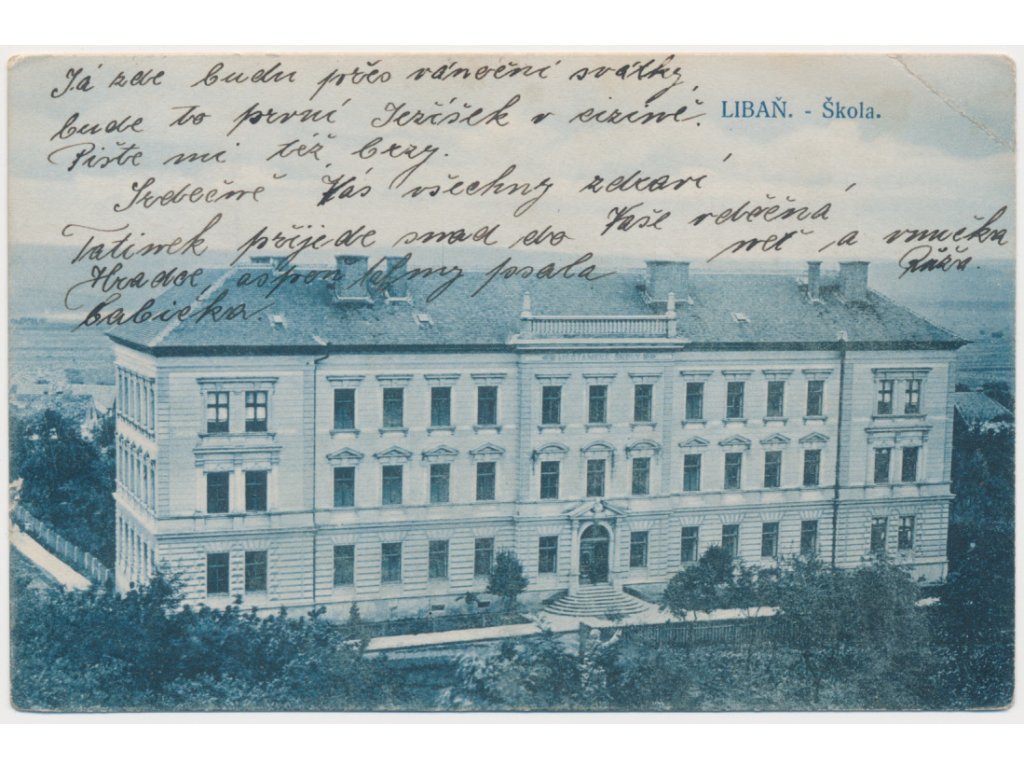 Já zde budu přes vánoční svátky,
bude to první Ježíšek v cizině.
LIBAŇ. - Škola.
Pište mi též brzy.
Srdečně Vás všechny zdraví
Vaše vděčná
neť a vnučka
Růža.
Tatínek přijede snad do
Hradce, aspoň psala
babička.
MĚŠŤANSKÉ ŠKOLY